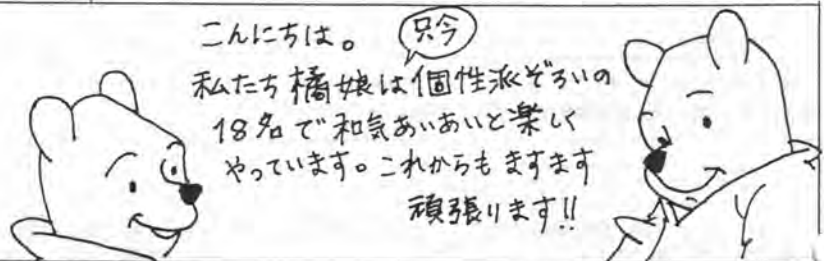 こんにちは。
只今
私たち橘娘は個性派ぞろいの
18名で和気あいあいと楽しく
やっています。これからもますます
頑張ります!!